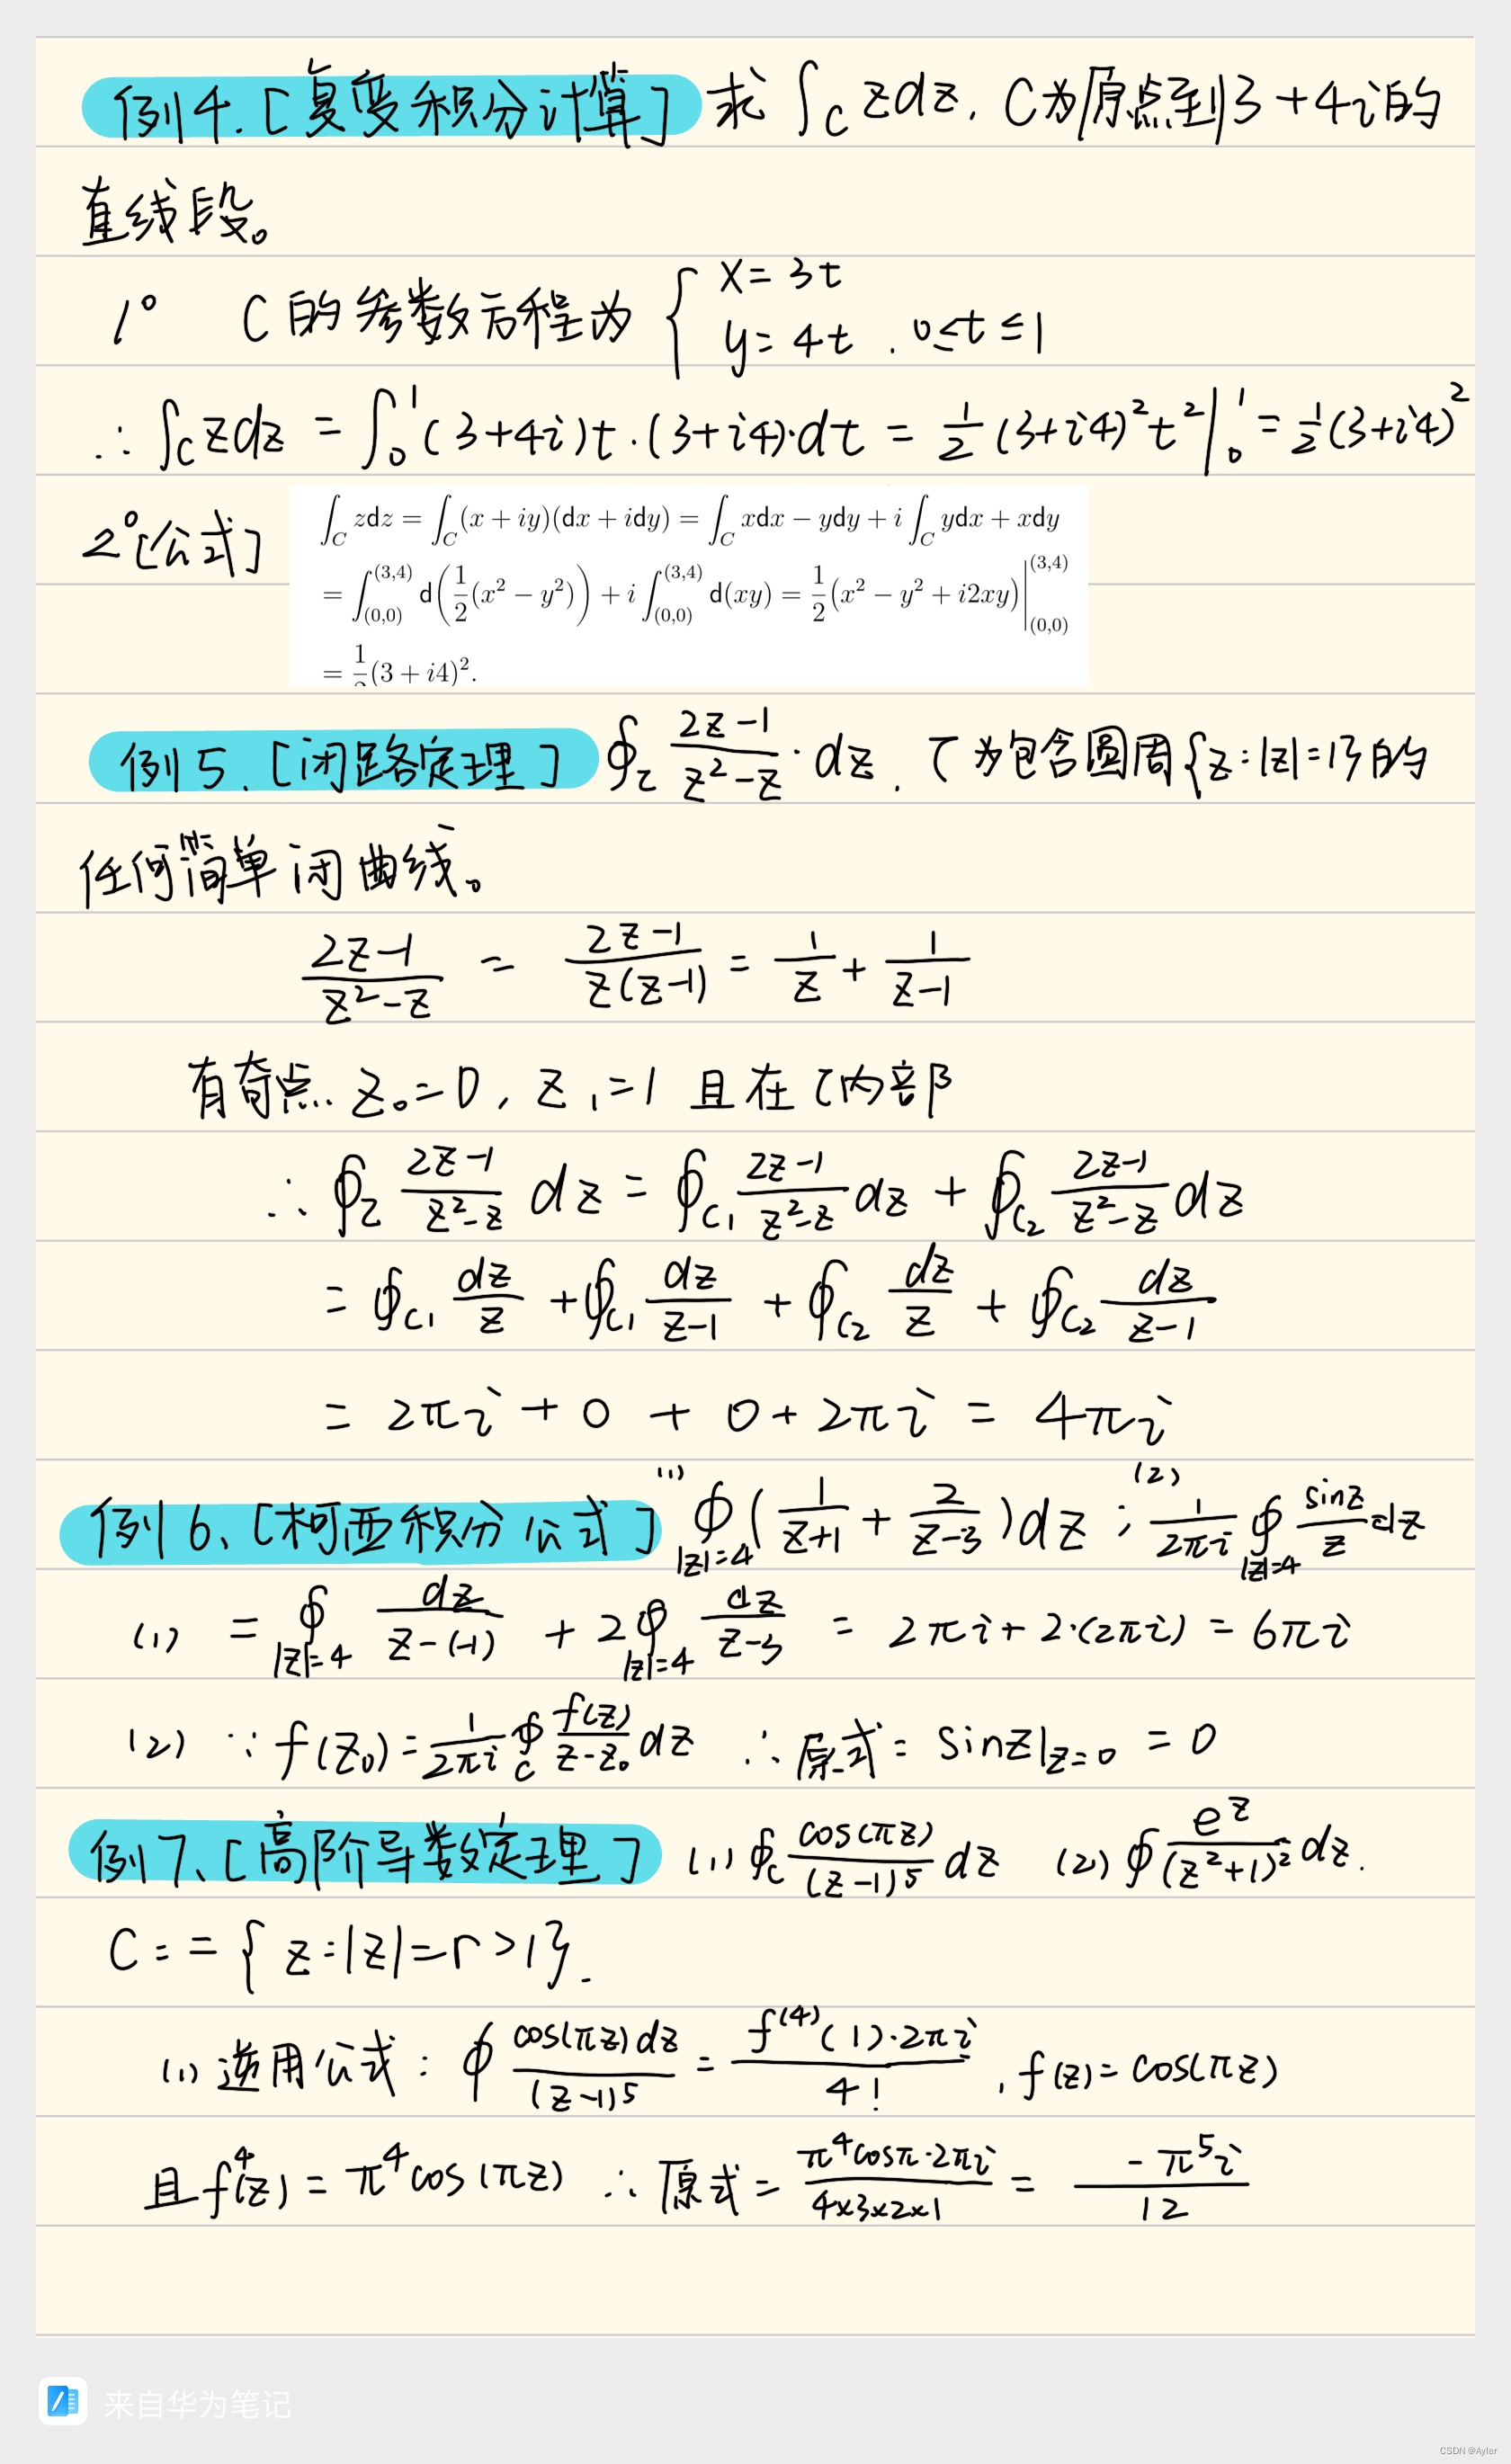 例4.[复变积分计算] 求 ∫_C zdz. C为原点到3+4i的
直线段。
1° C的参数方程为 { x=3t
y=4t . 0≤t≤1
∴ ∫_C zdz = ∫_0^1 (3+4i)t·(3+i4)·dt = 1/2 (3+i4)^2 t^2 |_0^1 = 1/2 (3+i4)^2
2°[公式]
∫_C zdz = ∫_C (x+iy)(dx+idy) = ∫_C xdx − ydy + i ∫_C ydx + xdy
= ∫_(0,0)^(3,4) d(1/2 (x^2 − y^2)) + i ∫_(0,0)^(3,4) d(xy) = 1/2 (x^2 − y^2 + i2xy) |_(0,0)^(3,4)
= 1/2 (3+i4)^2.
例5.[闭路定理] ∮_τ (2z-1)/(z^2-z) · dz. τ为包含圆周{z:|z|=1}的
任何简单闭曲线。
(2z-1)/(z^2-z) = (2z-1)/(z(z-1)) = 1/z + 1/(z-1)
有奇点. z_0=0, z_1=1 且在τ内部
∴ ∮_τ (2z-1)/(z^2-z) dz = ∮_C1 (2z-1)/(z^2-z) dz + ∮_C2 (2z-1)/(z^2-z) dz
= ∮_C1 dz/z + ∮_C1 dz/(z-1) + ∮_C2 dz/z + ∮_C2 dz/(z-1)
= 2πi + 0 + 0 + 2πi = 4πi
例6、[柯西积分公式] (1) ∮_|z|=4 (1/(z+1) + 2/(z-3))dz ; (2) 1/(2πi) ∮_|z|=4 sinz/z dz
(1) = ∮_|z|=4 dz/(z-(-1)) + 2∮_|z|=4 dz/(z-3) = 2πi+2·(2πi) = 6πi
(2) ∵ f(z_0) = 1/(2πi) ∮_C f(z)/(z-z_0) dz ∴ 原式 = sinz|_z=0 = 0
例7、[高阶导数定理] (1) ∮_C cos(πz)/(z-1)^5 dz (2) ∮ e^z/(z^2+1)^2 dz.
C: = { z:|z|=r>1}.
(1) 逆用公式: ∮ cos(πz)dz/(z-1)^5 = f^(4)(1)·2πi/4! , f(z)=cos(πz)
且f^4(z) = π^4 cos(πz) ∴ 原式 = π^4cosπ·2πi/(4×3×2×1) = -π^5i/12
来自华为笔记
CSDN @Ayler